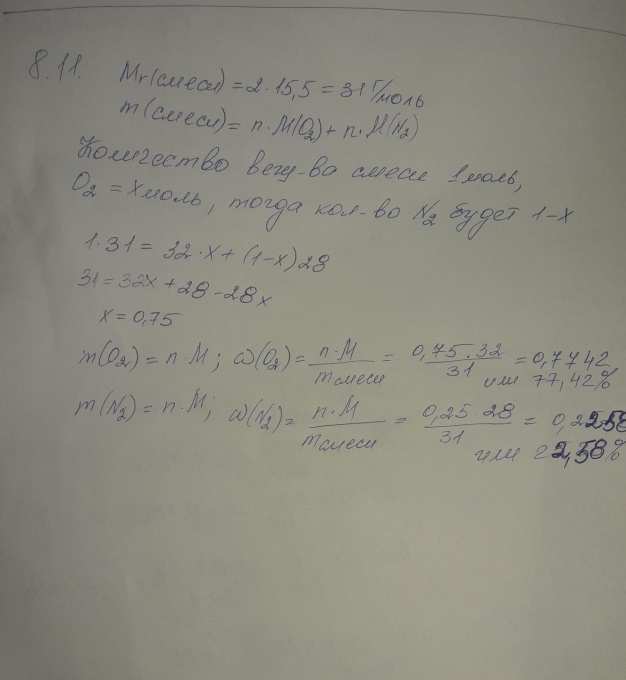 8.11. Mr(смеси) = 2·15,5 = 31 г/моль
m(смеси) = n·M(O₂) + n·M(N₂)
Количество вещ-ва смеси 1 моль,
O₂ = x моль, тогда кол-во N₂ будет 1-x
1·31 = 32·x + (1-x)28
31 = 32x + 28 - 28x
x = 0,75
m(O₂) = n·M; ω(O₂) = n·M / mсмеси = 0,75·32 / 31 = 0,7742
или 77,42%
m(N₂) = n·M; ω(N₂) = n·M / mсмеси = 0,25 28 / 31 = 0,2258
или 22,58%